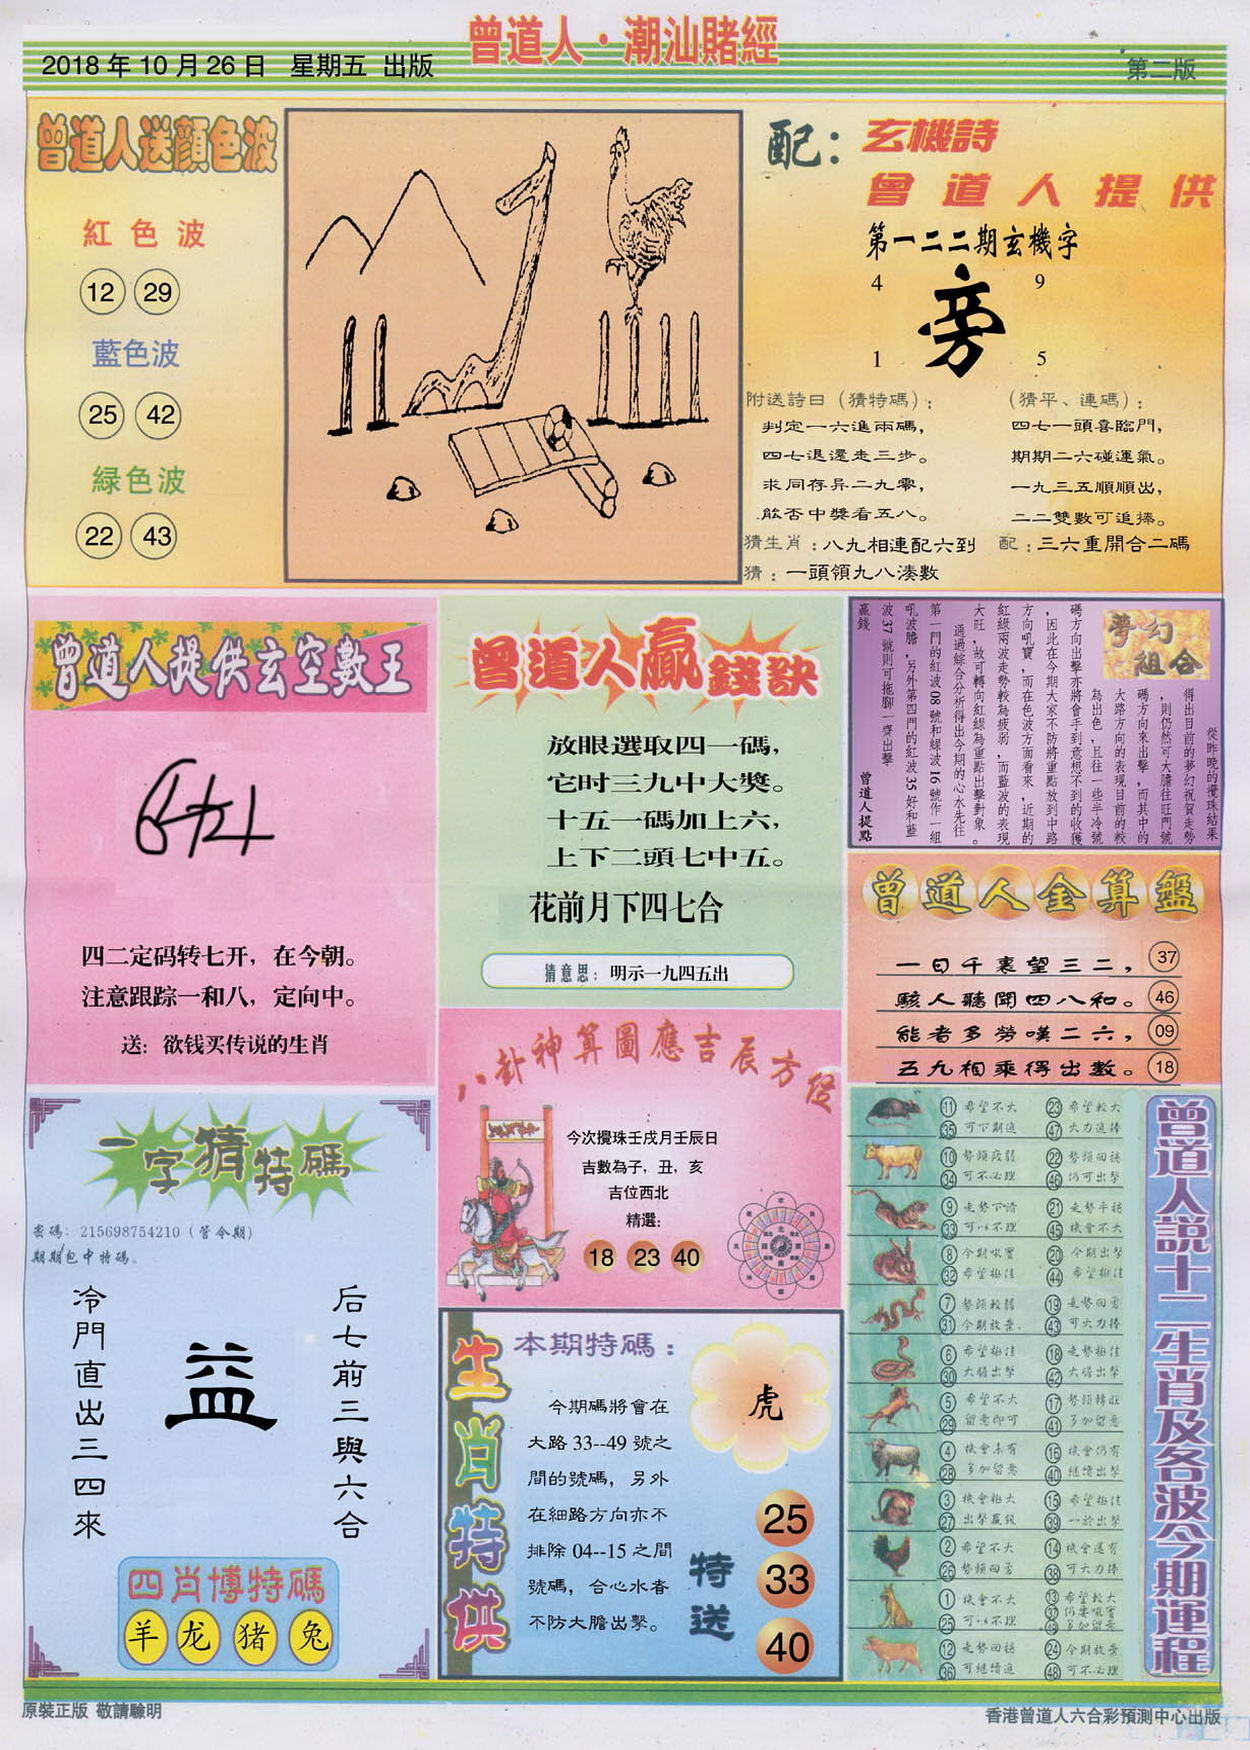 曾道人·潮汕賭經
2018年10月26日 星期五 出版
第二版
曾道人送顔色波
紅色波
12 29
藍色波
25 42
緑色波
22 43
配：玄機詩
曾道人提供
第一二二期玄機字
4 9
旁
1 5
附送詩曰（猜特碼）：
判定一六進兩碼，
四七退還走三步。
求同存异二九零，
能否中獎看五八。
（猜平、連碼）：
四七一頭喜臨門，
期期二六碰運氣。
一九三五順順出，
二二雙數可追捧。
猜生肖：八九相連配六到
配：三六重開合二碼
猜：一頭領九八湊數
曾道人提供玄空數王
四二定码转七开，在今朝。
注意跟踪一和八，定向中。
送：欲钱买传说的生肖
曾道人贏錢訣
放眼選取四一碼，
它时三九中大獎。
十五一碼加上六，
上下二頭七中五。
花前月下四七合
猜意思：明示一九四五出
夢幻組合
從昨晚的攪珠結果
得出目前的夢幻祝賀走勢
，則仍然可大膽往旺門號
碼方向來出擊，而其中的
大路方向的表現目前的較
為出色，且往一些半冷號
碼方向出擊亦將會手到意想不到的收獲
，因此在今期大家不防將重點放到中路
方向吼寶，而在色波方面看來，近期的
紅綠兩波走勢較為疲弱，而藍波的表現
大旺，故可轉向紅綠為重點出擊對象。
通過綜合分析得出今期的心水先往
第一門的紅波08號和綠波16號作一組
吼波膽，另外第四門的紅波35好和藍
波37號則可拖腳一齊出擊
贏錢
曾道人提點
曾道人金算盤
一日千裏望三二， 37
駭人聽聞四八和。 46
能者多勞嘆二六， 09
五九相乘得出數。 18
八卦神算圖應吉辰方位
今次攪珠壬戌月壬辰日
吉數為子，丑，亥
吉位西北
精選：
18 23 40
一字猜特碼
密碼：215698754210（管令期）
期期包中特碼。
冷門直出三四來
益
后七前三與六合
四肖博特碼
羊 龙 猪 兔
生肖特供
本期特碼：
虎
今期碼將會在
大路33--49號之
間的號碼，另外
在細路方向亦不
排除04--15之間
號碼，合心水者
不防大膽出擊。
特送
25
33
40
曾道人説十二生肖及各波今期運程
11 希望不大 23 希望較大
35 可下期追 47 大力追捧
10 勢頭疲弱 22 勢頭回穩
34 可不必理 46 仍可出擊
9 走勢下滑 21 走勢平穩
33 可以不理 45 機會不大
8 今期吼寶 20 今期出擊
32 希望極佳 44 希望極佳
7 勢頭較弱 19 走勢回勇
31 今期放棄. 43 可大力捧
6 希望極佳 18 走勢極佳
30 大膽出擊 42 大膽出擊
5 希望不大 17 勢頭轉旺
29 留意即可 41 多加留意
4 機會未有 16 機會仍有
28 多加留意 40 繼續出擊
3 機會極大 15 希望極佳
27 出擊贏錢 39 一於出擊
2 希望不大 14 機會還有
26 勢頭回勇 38 可大力捧
1 機會不大 13 希望較大
25 可以不理 37 仍要吼寶
49 多加留意
12 走勢回穩 24 今期放棄
36 可繼續追 48 可不必理
原裝正版 敬請驗明
香港曾道人六合彩預測中心出版